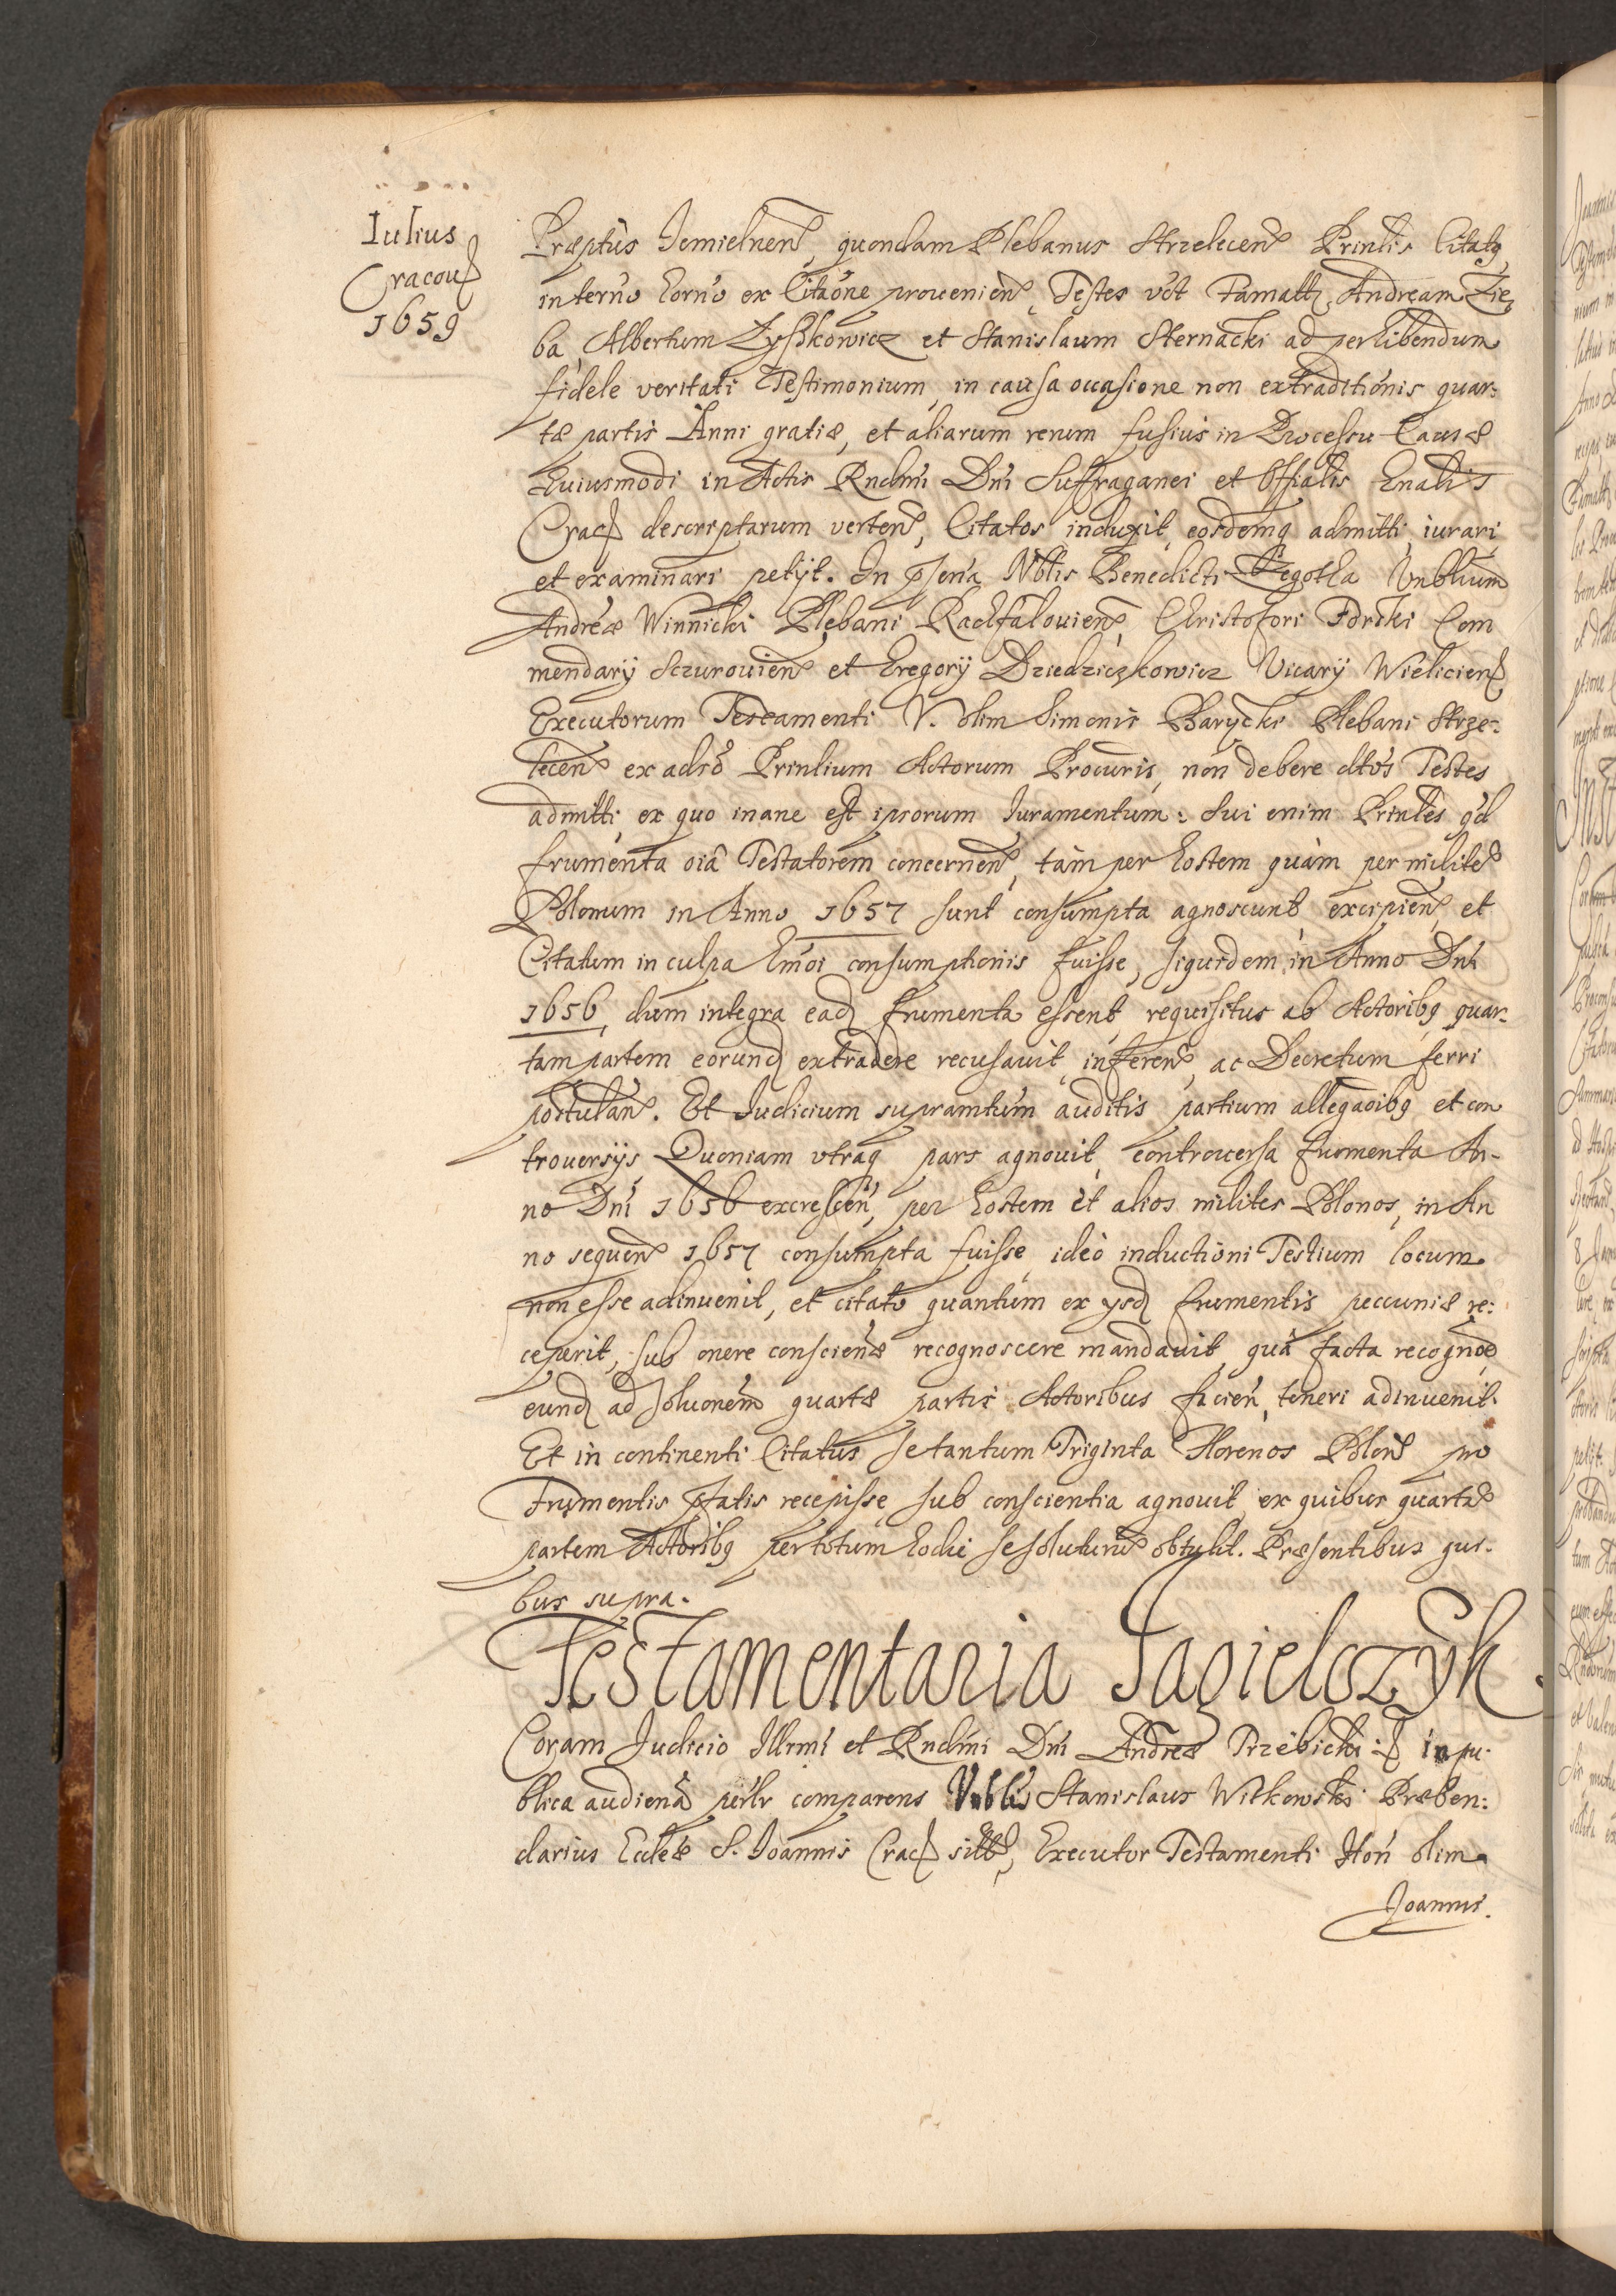 Iulius
Cracou
1659
Præptus Jemielnen, quondam Plebanus Strzelecen Prinlis Citatq
in terno horno ex Citaône prouenien, Testes vŏt Famatt Andream Zie
ba, Albertum Zyszkowicz et Stanislaum Sternacki ad perhibendum
fidele veritati Testimonium, in causa occasione non extraditionis quar:
tæ partis Anni gratiæ, et aliarum rerum fusius in Processu Causæ
huiusmodi in Actis Rndmi Dni Suffraganei et Offialis Gnalis
Crac descriptarum verten, Citatos induxit, eosdemq admitti, iurari
et examinari petijt. In psena Nblis Benedicti Zegotha Vnblium
Andreæ Winnicki Plebani Rachfalouien, Christofori Forski Com
mendarij Sczurouien et Gregorij Dziedziczkowicz Vicarij Wielicien
Executorum Testamenti V. olim Simonis Barycki Plebani Strze:
lecen ex adsò Prinlium Actorum Procuris, non debere dtos Testes
admitti, ex quo inane est ipsorum Iuramentum: Sui enim Prinles qd
frumenta oiâ Testatorem concernen, tàm per hostem quàm per milite
Polonum in Anno 1657 sunt consumpta agnoscunt, excipien, et
Citatum in culpa hmoi consumptionis fuisse, siquidem in Anno Dni
1656, dum integra ead frumenta essent, requisitus ab Actoribq quar-
tam partem eorund extradere recusauit, inferen, ac Decretum ferri
postulan. Et Iudicium supramtum auditis partium allegaoibq et con
trouersijs, Quoniam vtraq pars agnouit, controuersa frumenta An-
no Dni 1656 excrescen, per hostem et alios milites Polonos, in An
no sequen 1657 consumpta fuisse, ideò inductioni Testium locum
non esse adinuenit, et citato quantum ex ysd frumentis pecuniæ re:
ceperit, sub onere conscienæ recognoscere mandauit, quâ facta recognoe
eund ad soluonem quartæ partis Actoribus facien, teneri adinuenit.
Et in continenti Citatus se tantum Triginta Florenos Polon pro
Frumentis pfatis recepisse, sub conscientia agnouit, ex quibus quarta
partem Actoribq per totum hodie se soluturu obtulit. Præsentibus qui-
bus supra.
Testamentaria Jagielczyk
Coram Iudicio Illrmi et Rndmi Dni Andreæ Trzebicki in pu-
blica audienâ pnlr comparens Vnblis Stanislaus Witkowski Præben:
darius Ecclæ S. Joannis Crac sitt, Executor Testamenti Hon olim
Joannis.